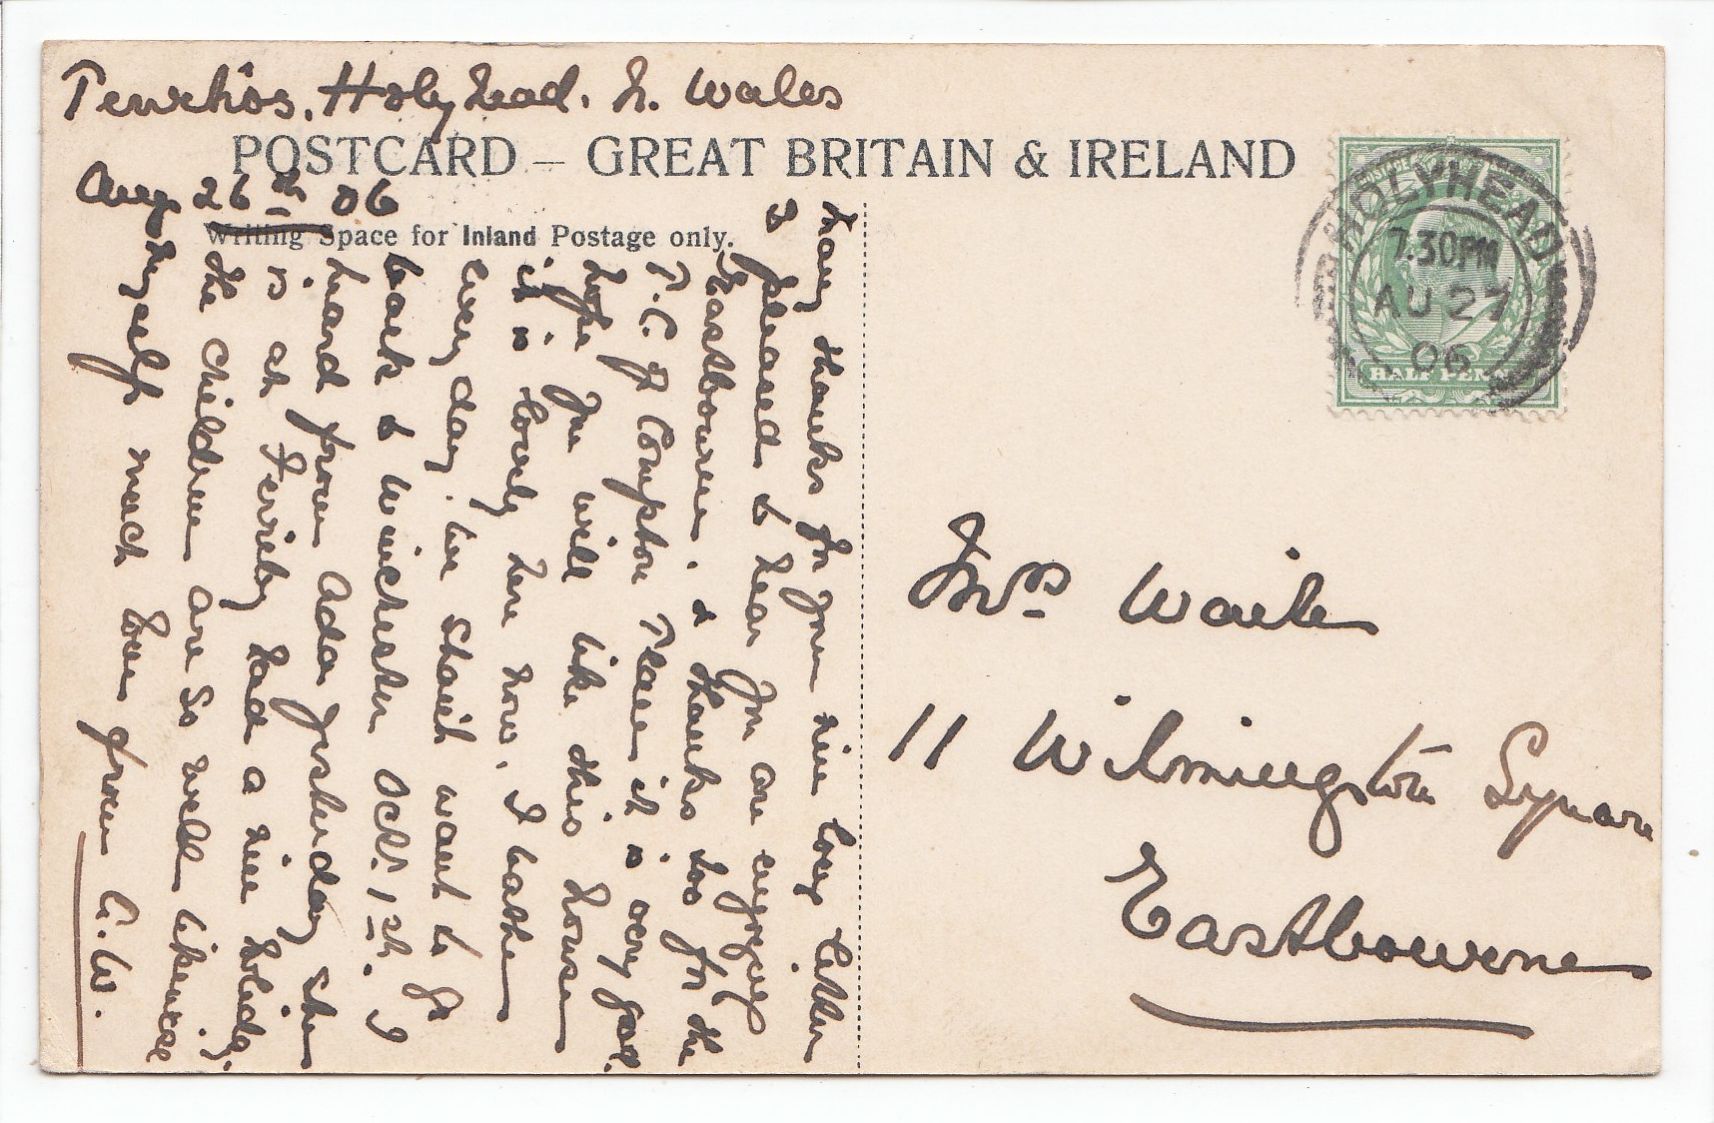 Penrhôs, Holyhead. N. Wales
POSTCARD – GREAT BRITAIN & IRELAND
Aug 26th 06
Writing Space for Inland Postage only.
Many thanks for your nice long letter
I pleased to hear you are enjoying
Eastbourne. & thanks too for the
P.C. of Compton Place it is very good.
hope you will like this house
it is lovely here now, I bathe
every day. we shant want to go
back to Winchester Oct. 1st. I
heard from Ada yesterday she
is at Ferriby had a nice holiday.
the children are so well likewise
myself much love from G.W.
HOLYHEAD
7.30PM
AU 27
06
POSTAGE
HALF PENNY
Mrs Waite
11 Wilmington Square
Eastbourne